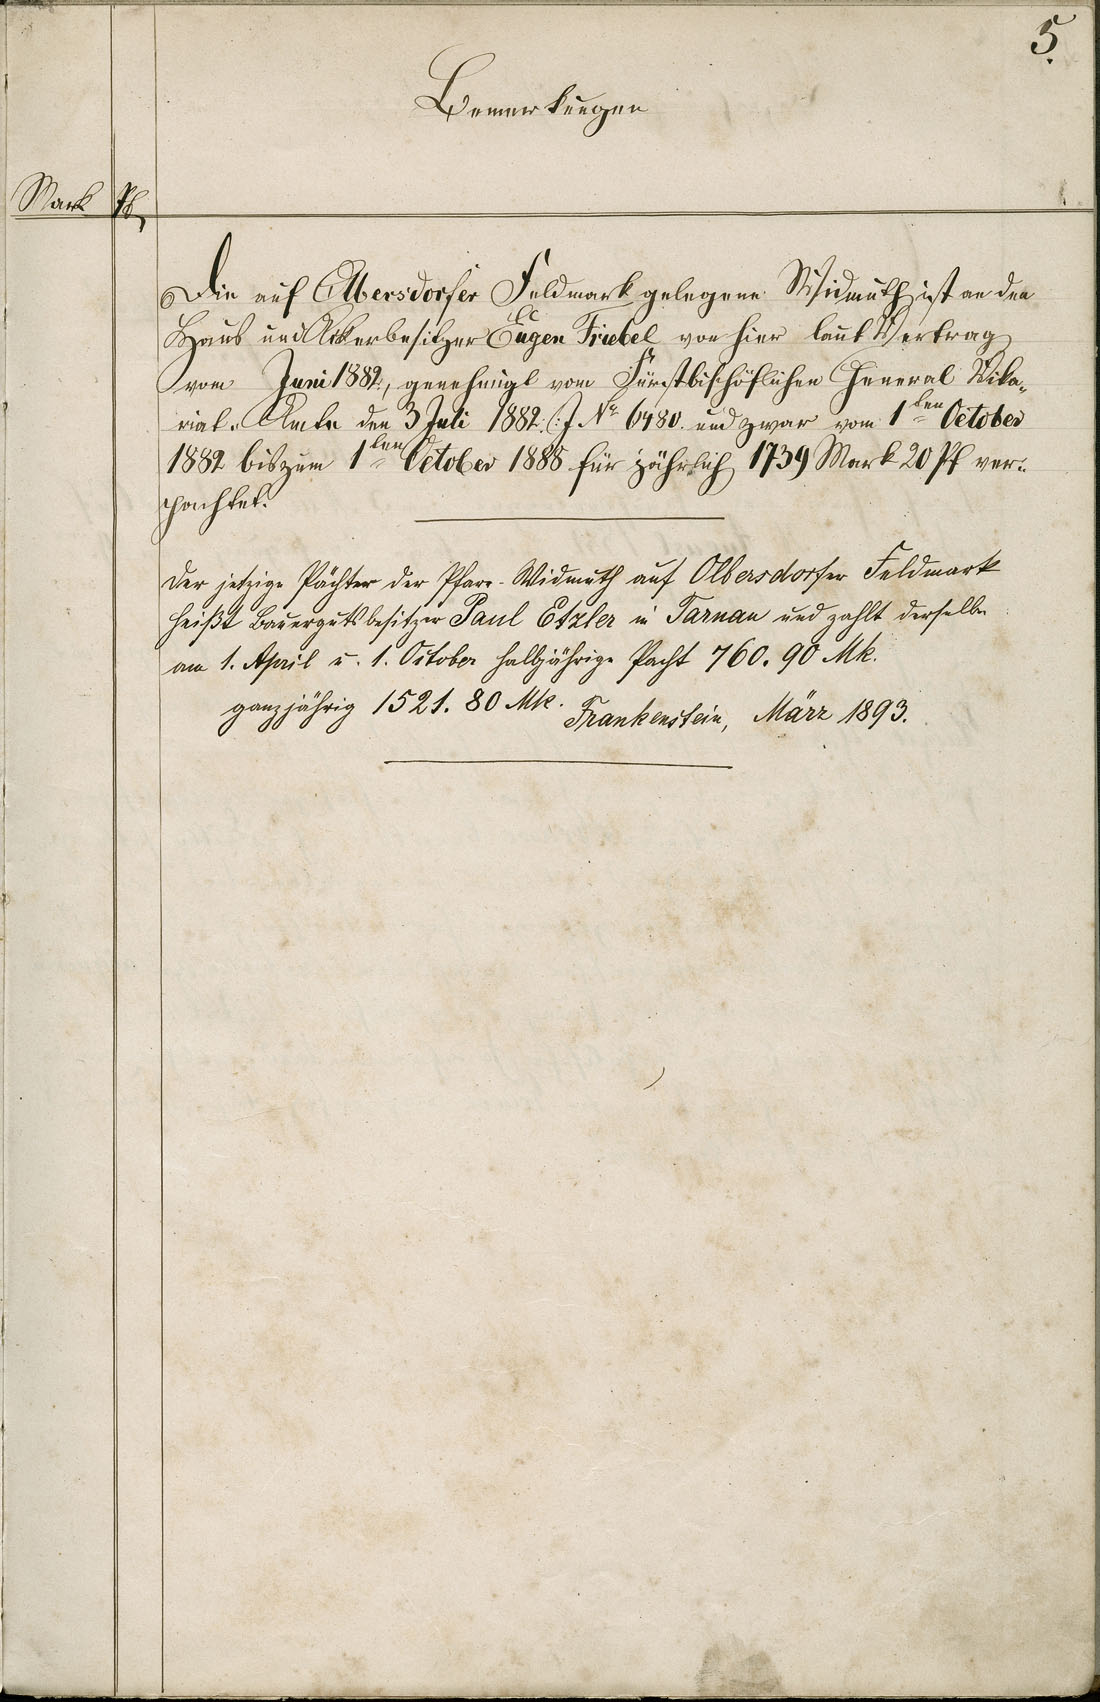 5.
Bemerkungen
Mark Pf.
Die auf Olbersdorfer Feldmark gelegene Widmuth ist an den
Haus und Ackerbesitzer Eugen Triebel von hier laut Vertrag
vom Juni 1882, genehmigt vom Fürstbischöflichen General Vika-
riat-Amte den 3 Juli 1882. (:J. No 6480. und zwar vom 1ten October
1882 bis zum 1ten October 1888 für jährlich 1739 Mark 20 Pf ver-
pachtet.
Der jetzige Pächter der Pfarr-Widmuth auf Olbersdorfer Feldmark
heißt Bauergutsbesitzer Paul Etzler in Tarnau und zahlt derselbe
am 1. April u. 1. October halbjährige Pacht 760. 90 Mk.
ganzjährig 1521. 80 Mk. Frankenstein, März 1893.